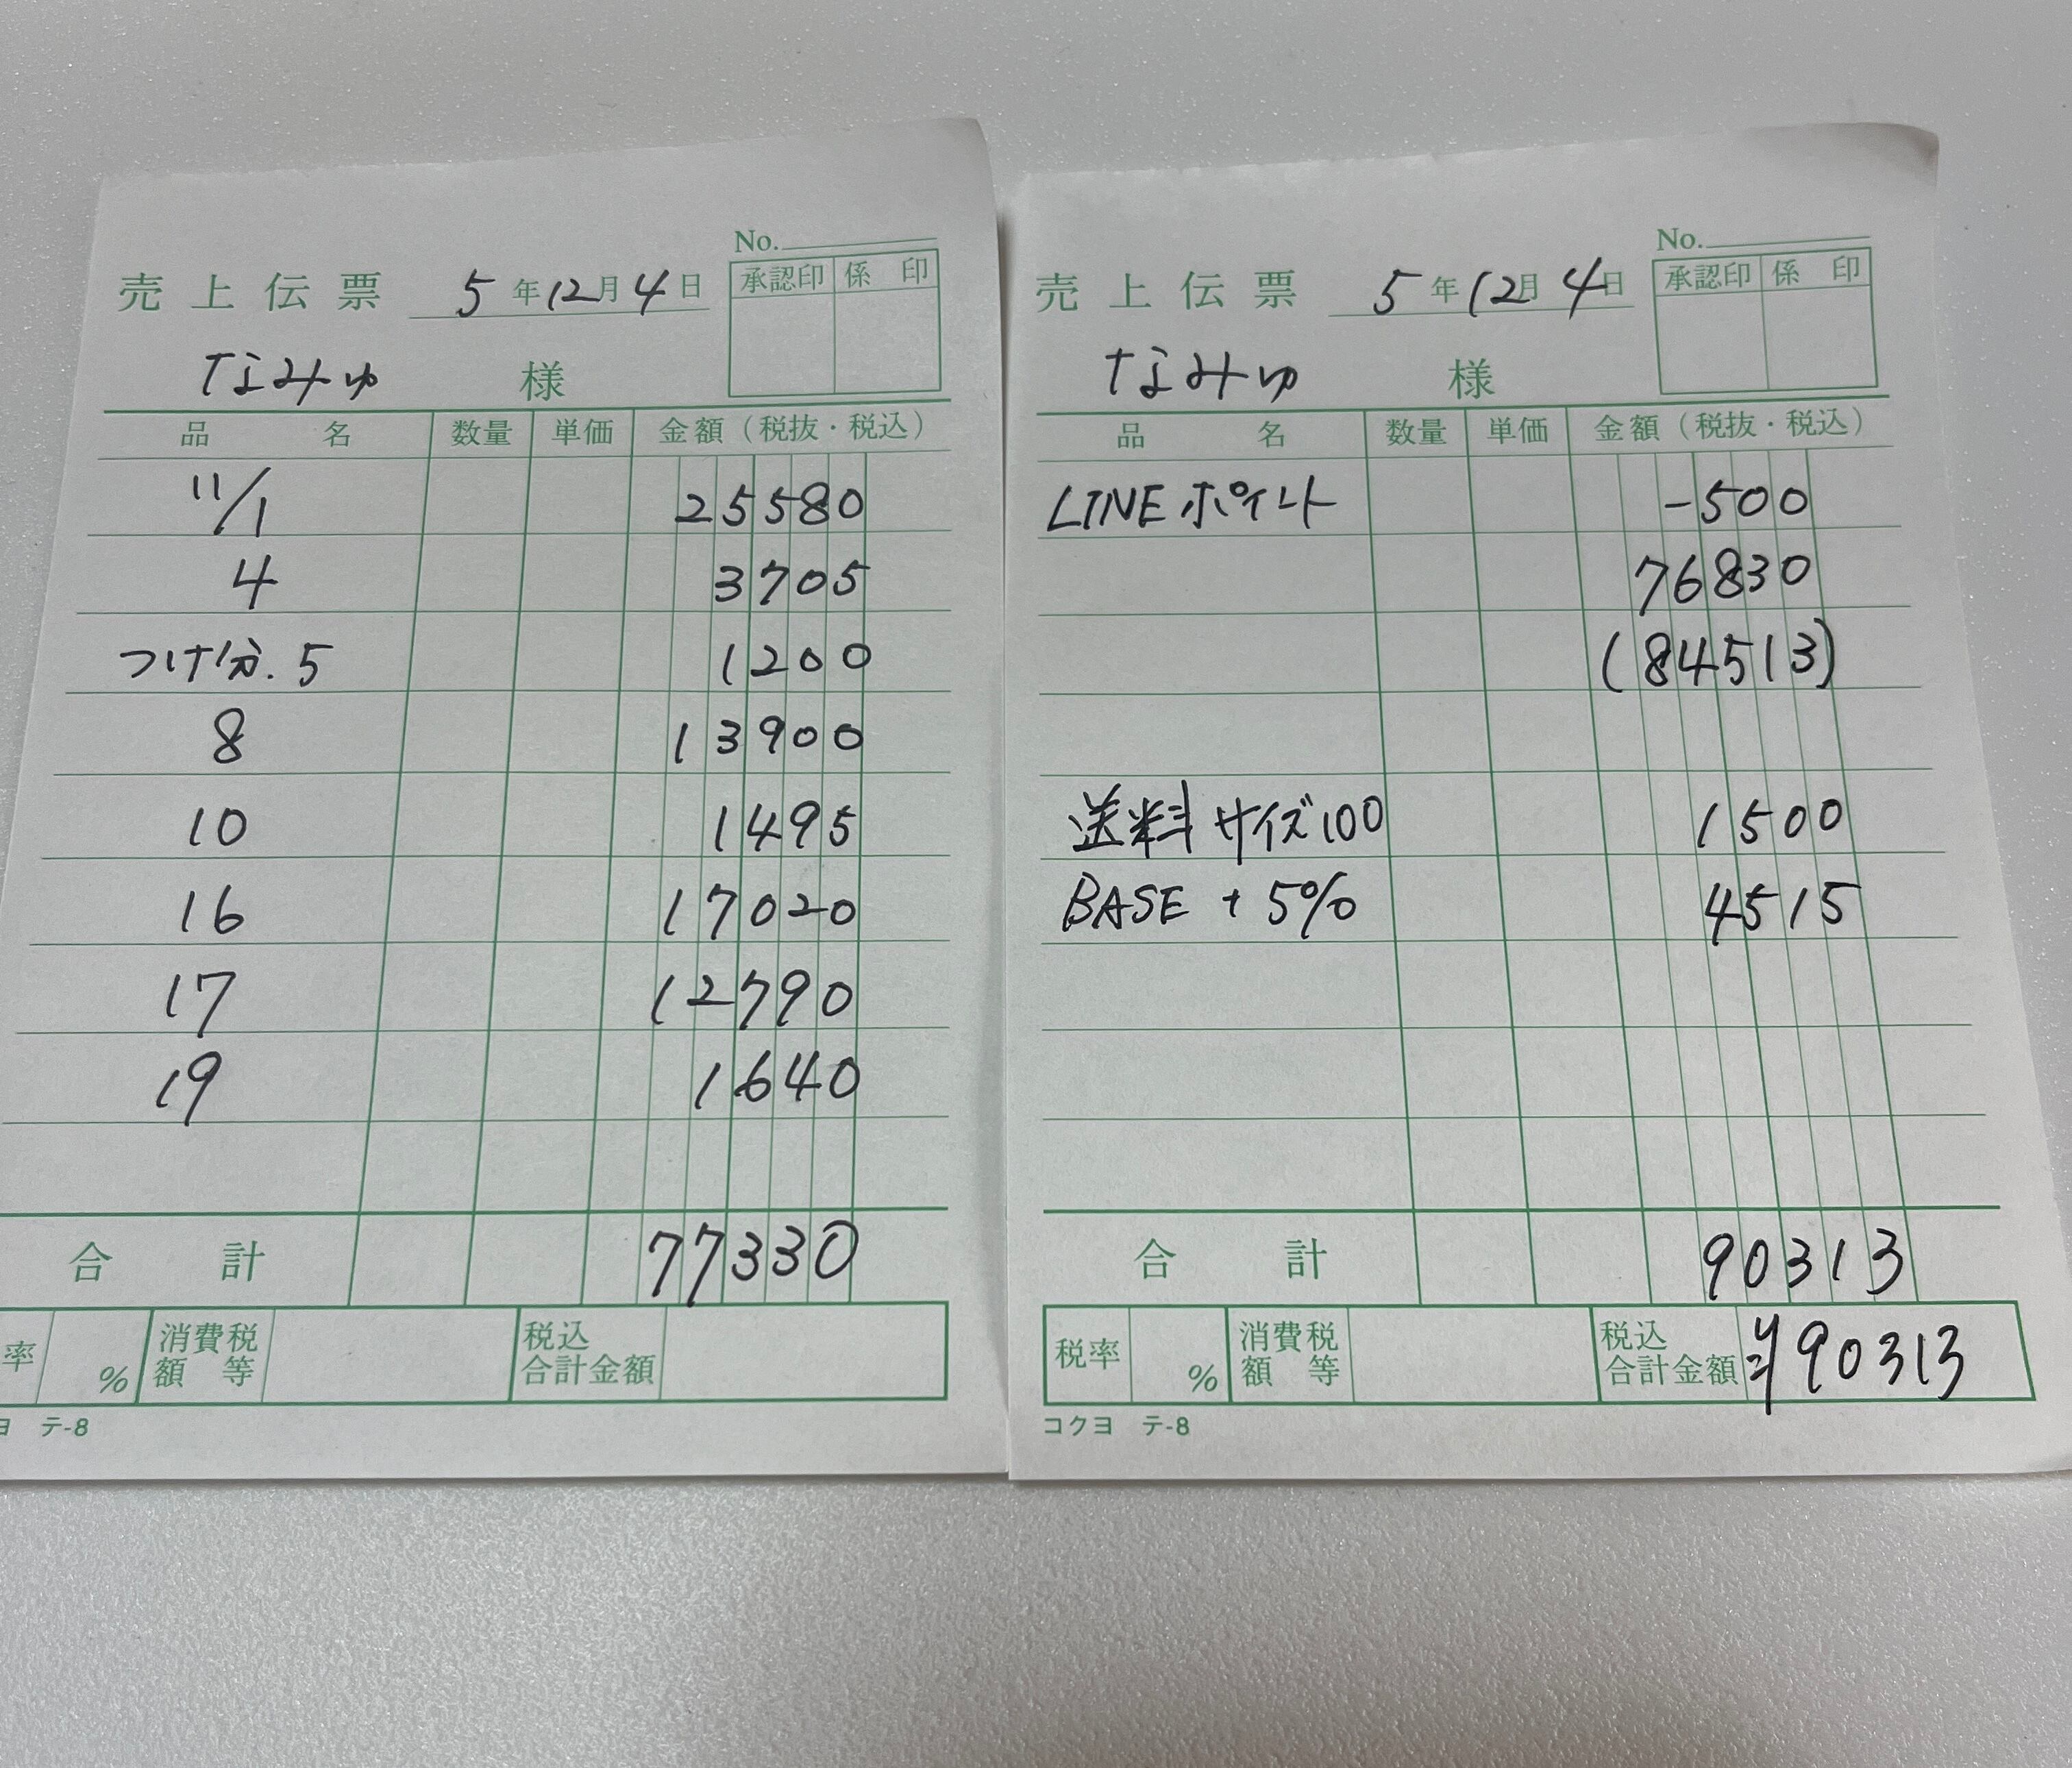 No.
売上伝票 5年12月4日 承認印 係印
なみゅ 様
品名 数量 単価 金額（税抜・税込）
11/1 25580
4 3705
つけ分.5 1200
8 13900
10 1495
16 17020
17 12790
19 1640
合計 77330
率 % 消費税額等 税込合計金額
ヨ テ-8
No.
売上伝票 5年12月4日 承認印 係印
なみゅ 様
品名 数量 単価 金額（税抜・税込）
LINEポイント -500
76830
(84513)
送料 サイズ100 1500
BASE + 5% 4515
合計 90313
税率 % 消費税額等 税込合計金額 ¥90313
コクヨ テ-8